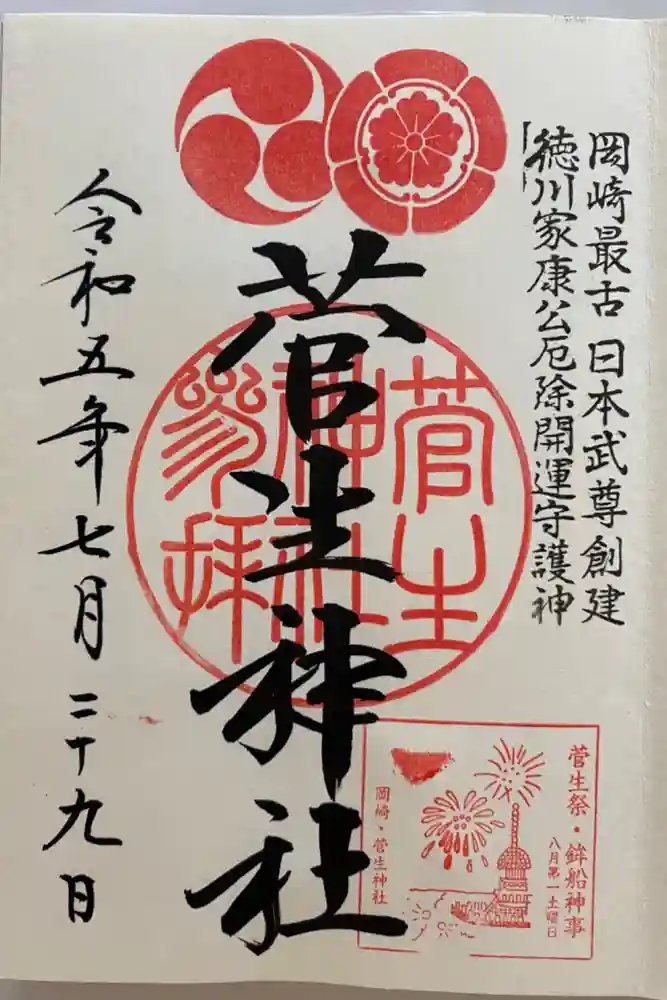 岡崎最古 日本武尊創建
「徳川家康公厄除開運守護神
菅生神社
菅生
神社
参拝
令和五年七月二十九日
菅生祭・鉾船神事
八月第一土曜日
岡崎・菅生神社